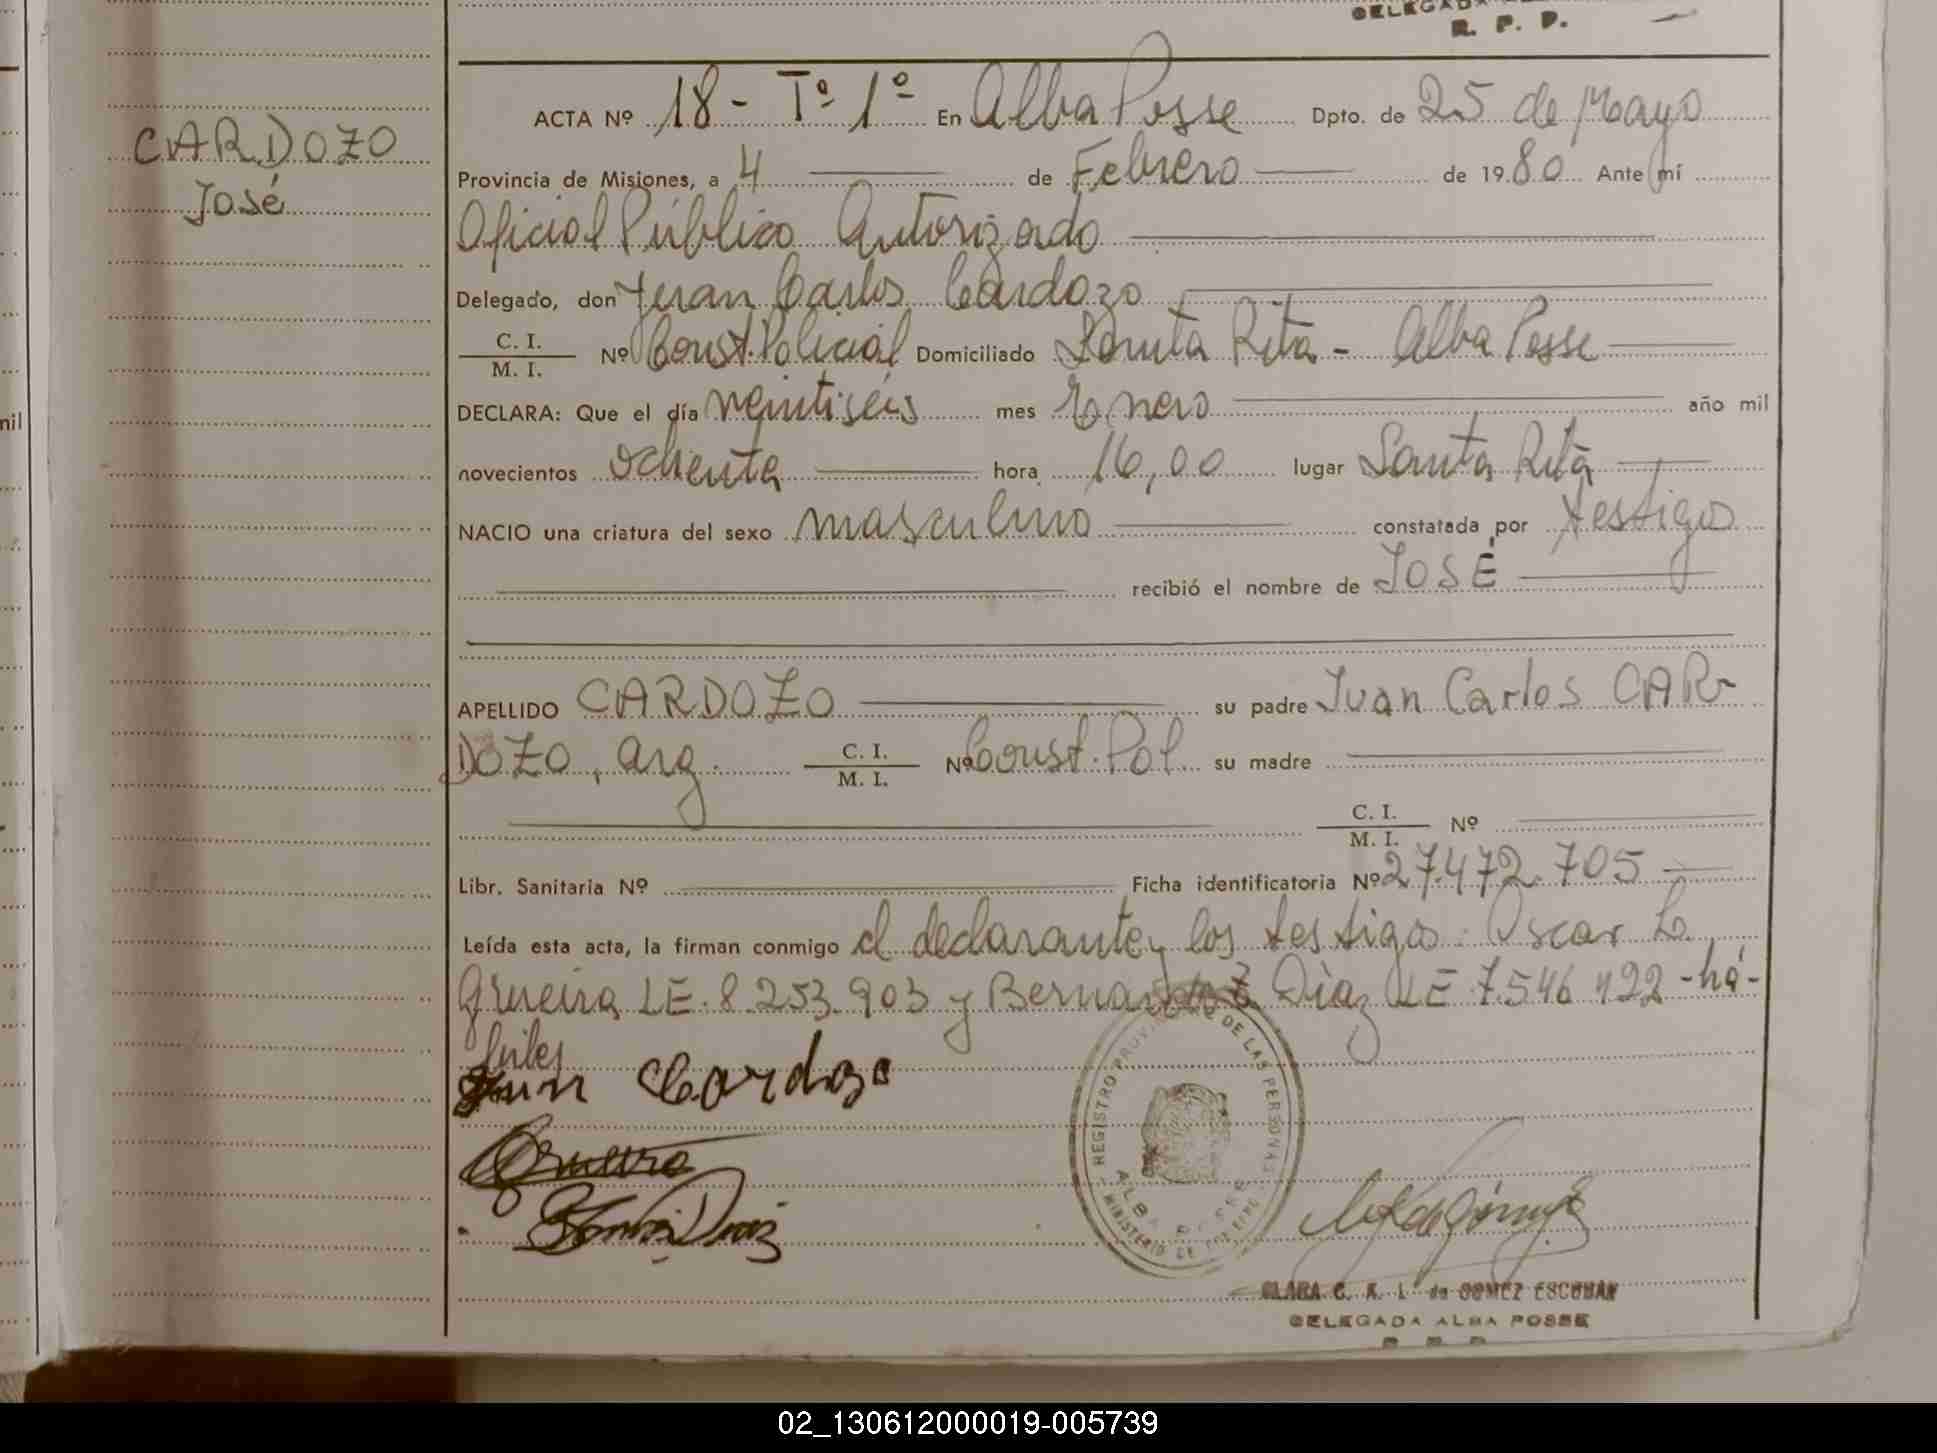 DELEGADA
R. P. P.
CARDOZO
José
ACTA Nº 18 - Tº 1º En Alba Posse Dpto. de 25 de Mayo
Provincia de Misiones, a 4 de Febrero de 1980 Ante mí
Oficial Público Autorizado
Delegado, don Juan Carlos Cardozo
C. I. / M. I. Nº Const. Policial Domiciliado Santa Rita - Alba Posse
DECLARA: Que el día veintiséis mes Enero año mil
novecientos ochenta hora 16,00 lugar Santa Rita
NACIO una criatura del sexo masculino constatada por testigo
recibió el nombre de JOSÉ
APELLIDO CARDOZO su padre Juan Carlos CAR-
DOZO, arg. C. I. / M. I. Nº Const. Pol. su madre
C. I. / M. I. Nº
Libr. Sanitaria Nº Ficha identificatoria Nº 27.472.705
Leída esta acta, la firman conmigo el declarante y los testigos: Oscar L.
Grueira LE. 8.253.903 y Díaz LE 7.546.422 - há-
biles
Juan Cardozo
Grueiro
Díaz
REGISTRO PROVINCIAL DE LAS PERSONAS
ALBA POSSE
MINISTERIO DE GOBIERNO
CLARA C. K. L. de GOMEZ ESCOBAR
DELEGADA ALBA POSSE
R. P. P.
nil
02_130612000019-005739